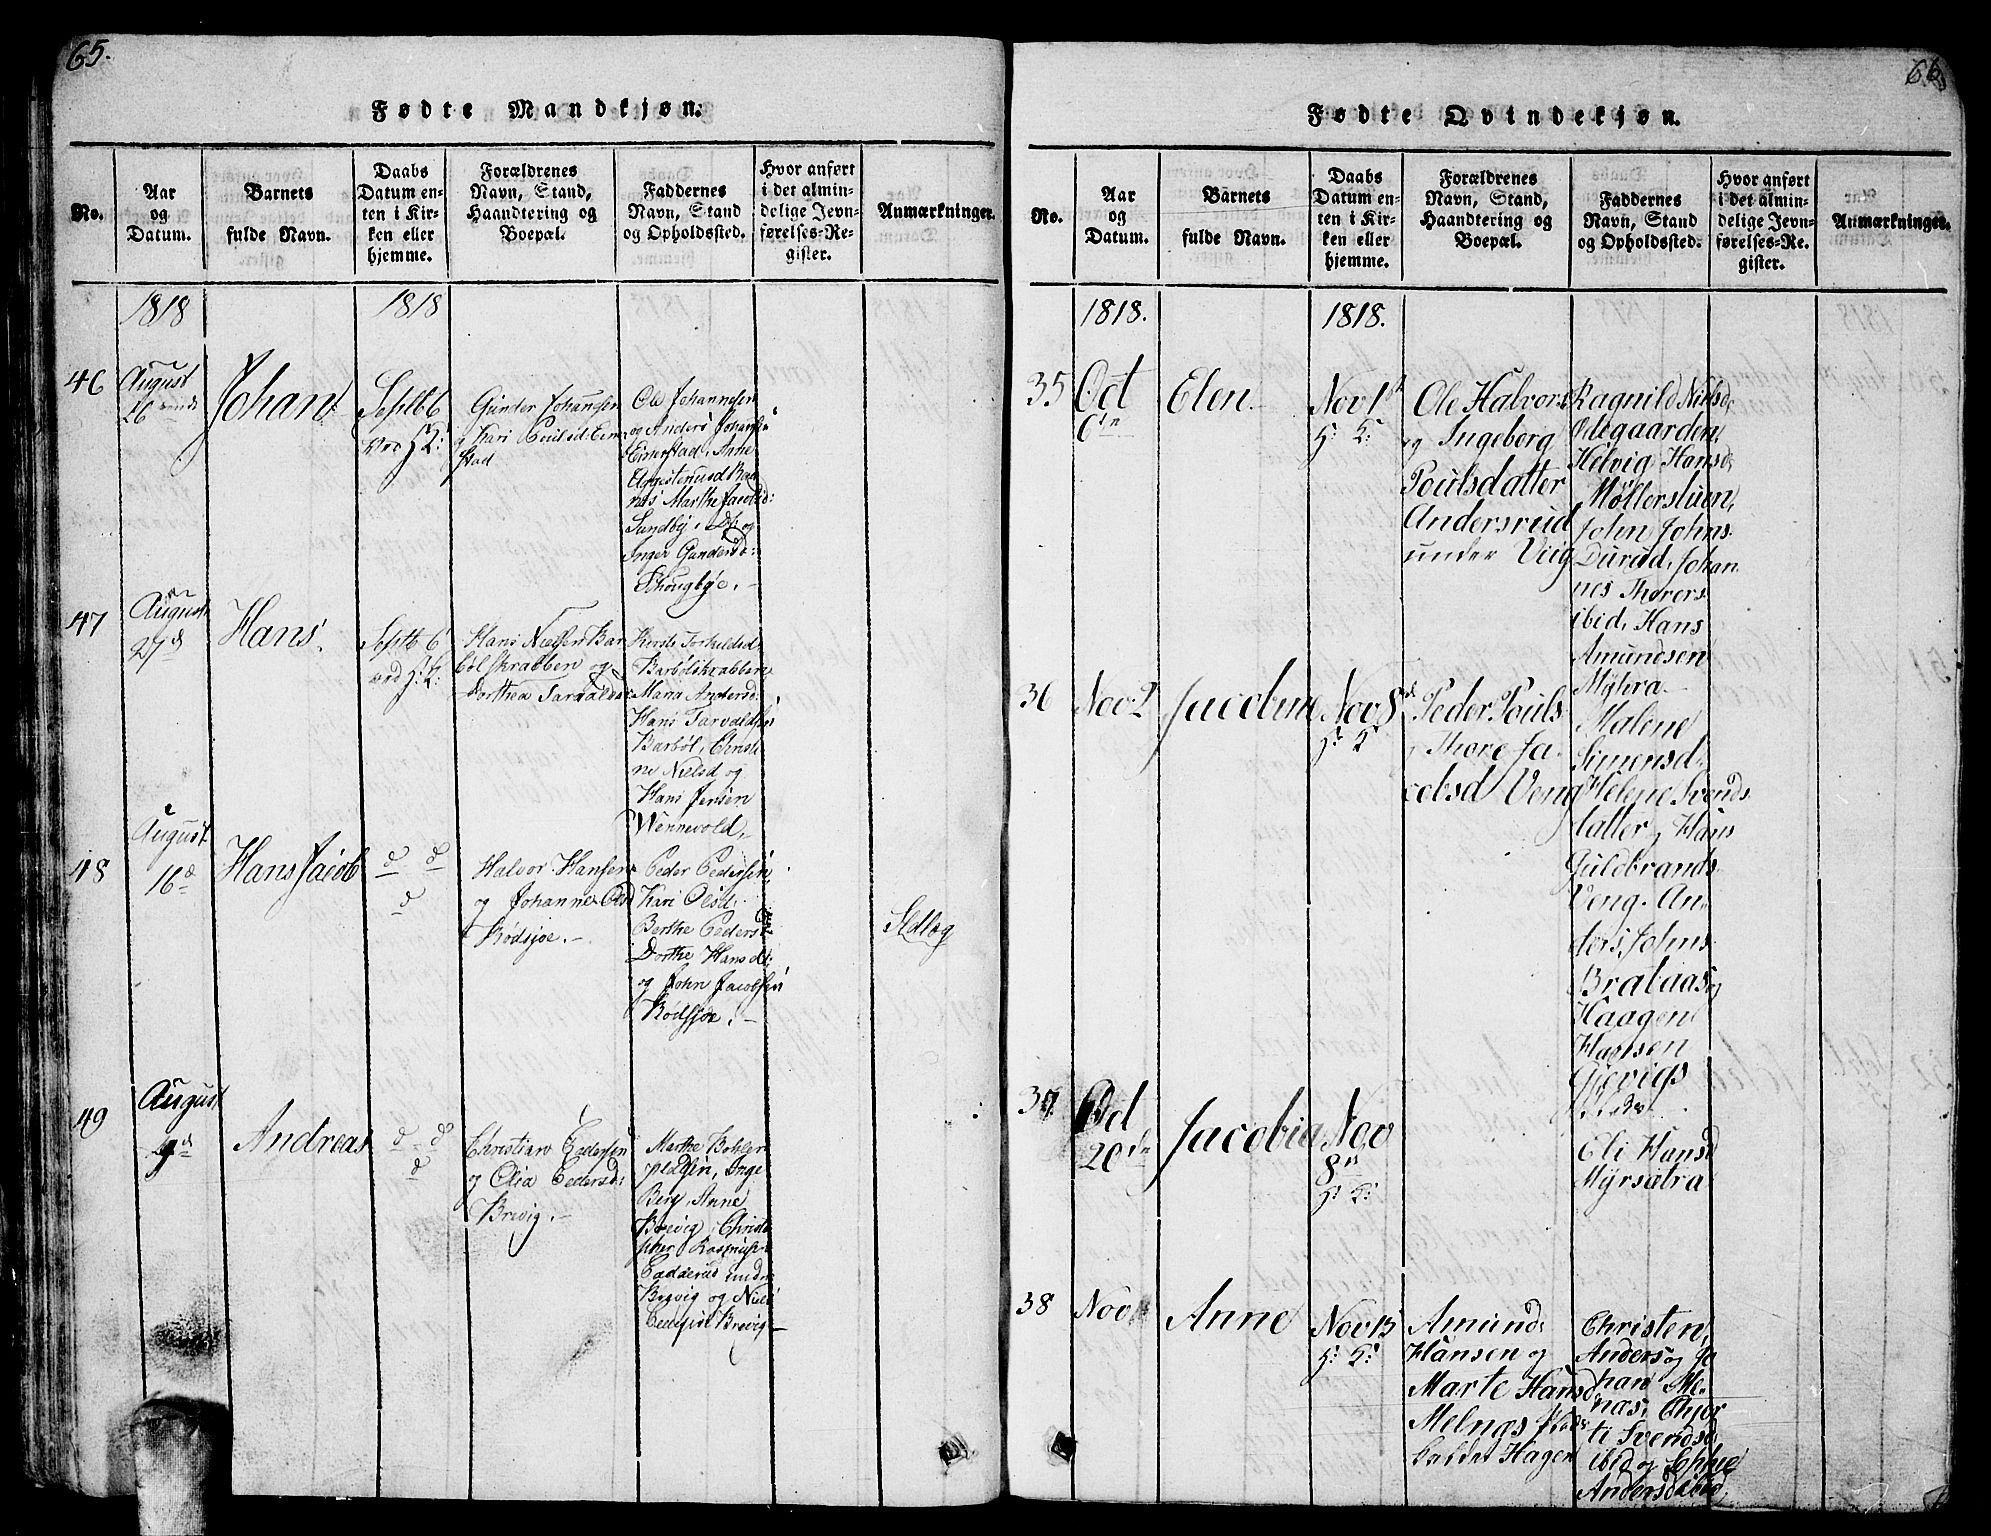 65.
Fødte Mandkjøn.
No.
Aar
og
Datum.
Barnets
fulde Navn.
Daabs
Datum en-
ten i Kir-
ken eller
hjemme.
Forældrenes
Navn, Stand,
Haandtering og
Boepæl.
Faddernes
Navn, Stand
og Opholdssted.
Hvor anført
i det almin-
delige Jevn-
førelses-Re-
gister.
Anmærkninger.
1818
1818
46
August
26
Johan
Septb 6
H: K:
Gunder Johansen
og Kari
stad
Ole Johannesen
og Anders
Anne
Marthe Jacobsd:
Sundby
Inger Gundersd:
Schougbye.
47
August
27d
Hans.
Septb 6
H: K:
Hans Nielsen Bar
bølskrabben og
Dorthea
Barbølskrabben
Maria Andersd:
Hans
Barbøl,
ne Nielsd og
Hans Jensen
Wennevold.
48
August
16d
Hans Jacob
d d
d
Halvor Hansen
og Johanne Olsd
Rødsjøe.
Peder Pedersen,
Kari Olsd:
Berthe Pedersd
Dorthe Hansd:
og John Jacobsen
Rødsjøe.
49
August
Andreas
d d
d
Christian Pedersen
og Olia Pedersd:
Brevig.
Marthe Bohler
pladsen, Inge
Berg, Anne
Brevig, Christo
pher Rasmusen
under
Brevig og Niels
Brevig
Sedlog
66
Fødte Qvindekjøn.
No.
Aar
og
Datum.
Barnets
fulde Navn.
Daabs
Datum en-
ten i Kir-
ken eller
hjemme.
Forældrenes
Navn, Stand,
Haandtering og
Boepæl.
Faddernes
Navn, Stand
og Opholdssted.
Hvor anført
i det almin-
delige Jevn-
førelses-Re-
gister.
Anmærkninger.
1818.
1818.
35
Oct
6te
Elen
Nov 1st
H: K:
Ole Halvors
og Ingeborg
Poulsdatter
Andersrud
under Viig
Ragnild Nielsd,
Olegaarden,
Helvig Hansd,
Möllerstuen,
John Johns
Durud, Johan
nes Thorers
ibid, Hans
Amundsen
Myhra
36
Nov 2
Jacobine
Nov 8d
H: K
Peder Pouls
og Thore Ja
cobsd Veng
Malene
Simensd,
Helene Svends
datter, Hans
Guldbrands
Veng. An
ders Johns
Brataas og
Haagen
Hansen
Gjevigs
37
Oct
20de
Jacobia
Nov
8de
H: K:
Eli Hansd
Myrsætra
38
Nov
Anne
Nov 15
H: K:
Amund
Hansen og
Marte Hansd
Melnas
Hagen
Christen
Anders og Jo
han Me
nas,
ti Svendsd
ibid og
Andersd ibid